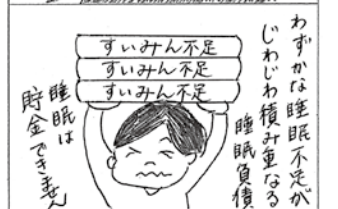 わずかな睡眠不足が
じわじわ積み重なる
睡眠負債
すいみん不足
すいみん不足
すいみん不足
睡眠は
貯金できません